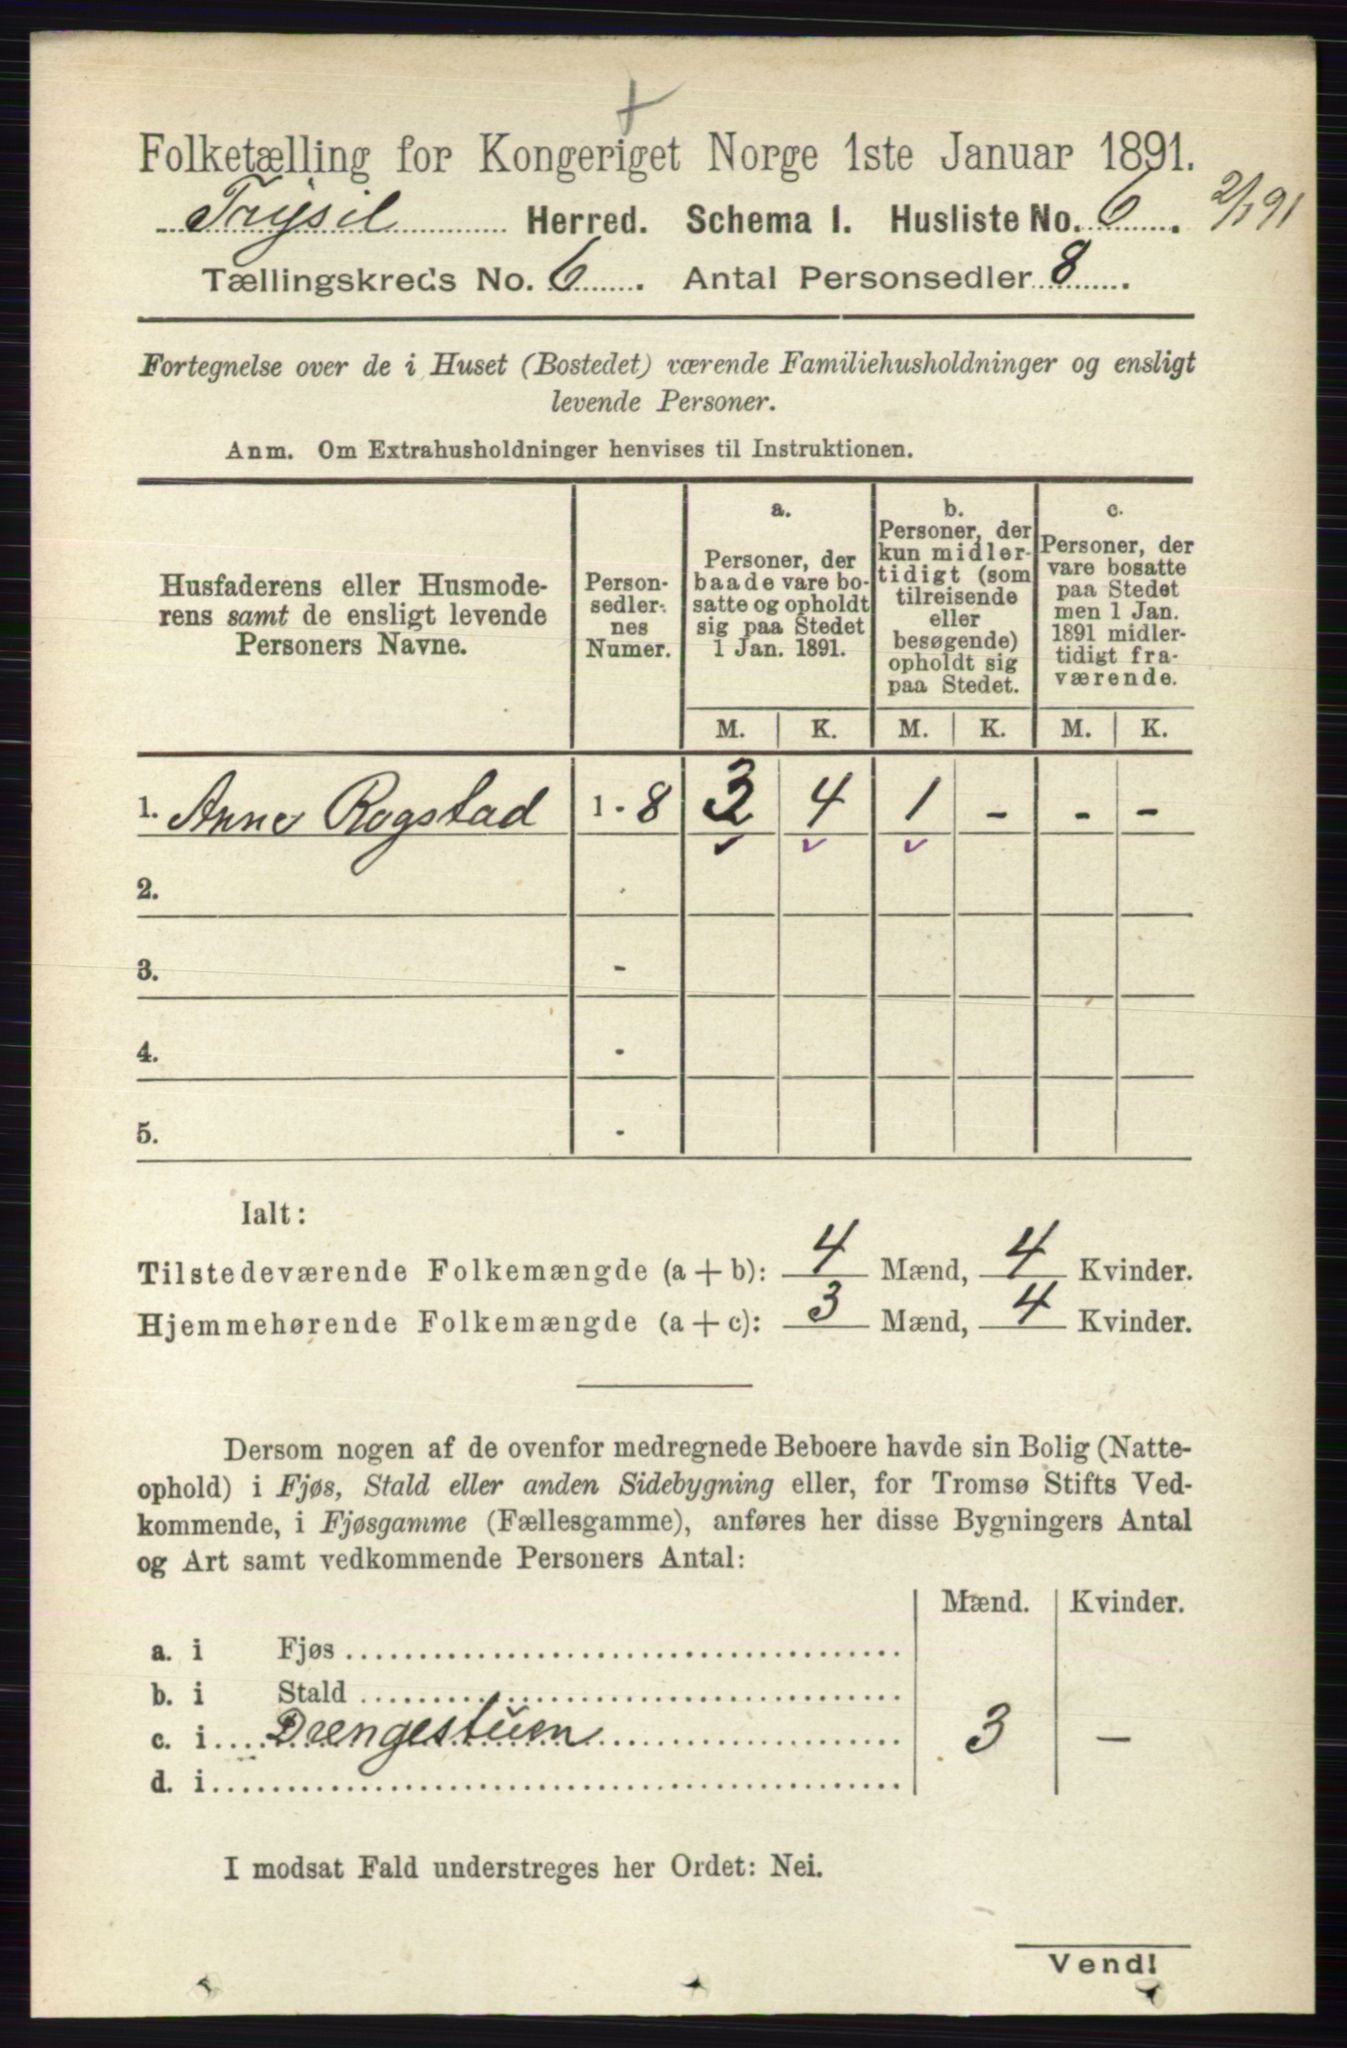 Folketælling for Kongeriget Norge 1ste Januar 1891.
Trysil Herred. Schema 1. Husliste No. 6. 2/1 91
Tællingskreds No. 6. Antal Personsedler 8.
Fortegnelse over de i Huset (Bostedet) værende Familiehusholdninger og ensligt
levende Personer.
Anm. Om Extrahusholdninger henvises til Instruktionen.
Husfaderens eller Husmode-
rens samt de ensligt levende
Personers Navne.
Person-
sedler-
nes
Numer.
a.
Personer, der
baade vare bo-
satte og opholdt
sig paa Stedet
1 Jan. 1891.
b.
Personer, der
kun midler-
tidigt (som
tilreisende
eller
besøgende)
opholdt sig
paa Stedet.
c.
Personer, der
vare bosatte
paa Stedet
men 1 Jan.
1891 midler-
tidigt fra-
værende.
M. K. M. K. M. K.
1. Anne Rogstad 1 - 8 3 4 1 - - -
2.
3. -
4. -
5. -
Ialt:
Tilstedeværende Folkemængde (a + b): 4 Mænd, 4 Kvinder.
Hjemmehørende Folkemængde (a + c): 3 Mænd, 4 Kvinder.
Dersom nogen af de ovenfor medregnede Beboere havde sin Bolig (Natte-
ophold) i Fjøs, Stald eller anden Sidebygning eller, for Tromsø Stifts Ved-
kommende, i Fjøsgamme (Fællesgamme), anføres her disse Bygningers Antal
og Art samt vedkommende Personers Antal:
Mænd. Kvinder.
a. i Fjøs
b. i Stald
c. i Drengestuen 3 -
d. i
I modsat Fald understreges her Ordet: Nei.
Vend!